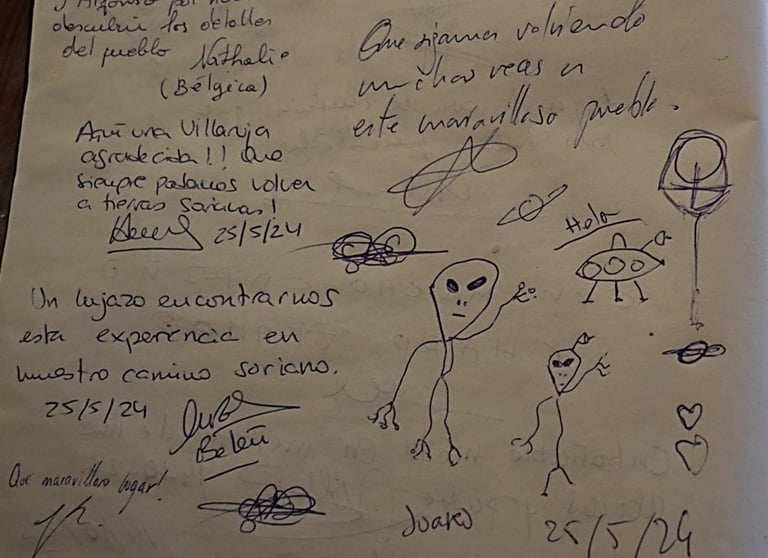 descubrir los detalles
del pueblo Nathalie
(Bélgica)
Que sigamos volviendo
muchas veces a
este maravilloso pueblo.
Aquí una Villaneja
agradecida!! Que
siempre podamos volver
a tierras sorianas!
25/5/24
Hola
Un lujazo encontrarnos
esta experiencia en
nuestro camino soriano.
25/5/24
Belén
Que maravilloso lugar!
25/5/24